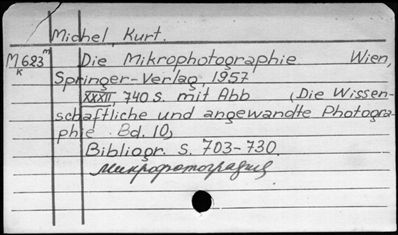 Michel, Kurt.
M 623 m Die Mikrophotographie Wien,
k Springer-Verlag 1957
XXXII, 740 S. mit Abb (Die Wissen-
schaftliche und angewandte Photogra-
phie. Bd. 10)
Bibliogr. S. 703-730.
микрофотография